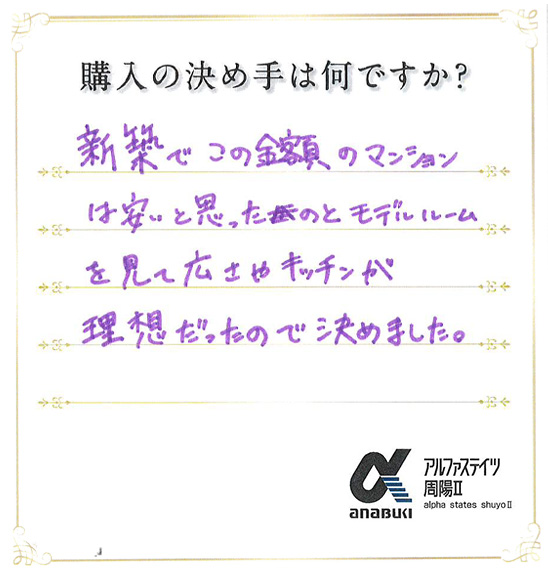 購入の決め手は何ですか?
新築でこの金額のマンション
は安いと思ったのとモデルルーム
を見て広さやキッチンが
理想だったので決めました。
アルファステイツ
周陽II
alpha states shuyo II
anabuki